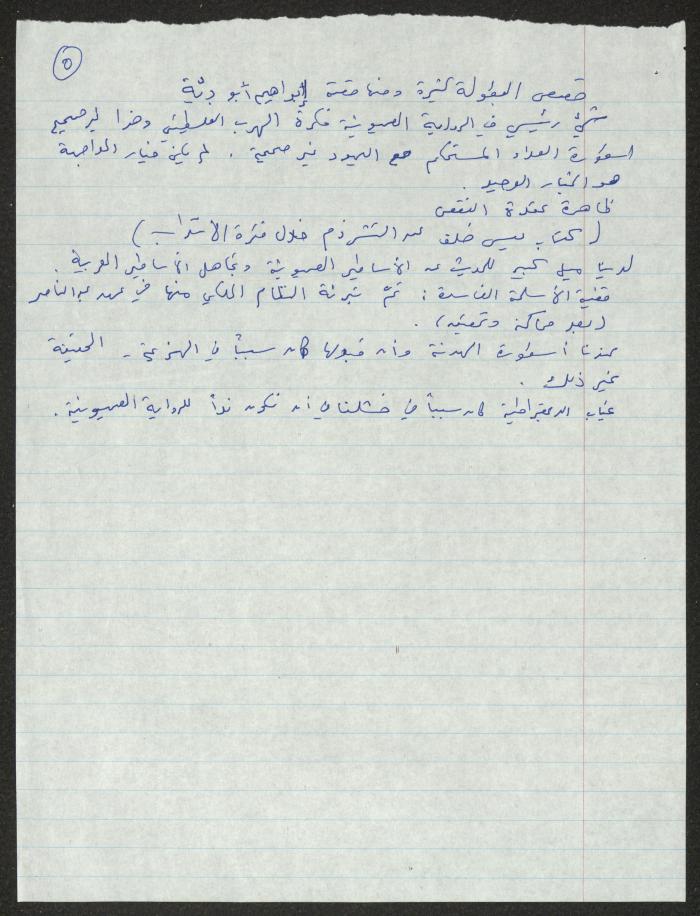 ٥
قصص البطولة كثيرة ومنها قصة إبراهيم أبو ديّة
شيء رئيسي في الرواية الصهيونية فكرة الهرب الفلسطيني وهذا غير صحيح
اسطورة العداء المستحكم مع اليهود غير صحيحة . لم يكن خيار المواجهة
هو الخيار الوحيد .
ظاهرة عقدة النقص
( كتاب عيسى خلف عن التشرذم خلال فترة الانتداب )
لدينا ميل كبير للحديث عن الأساطير الصهيونية وتجاهل الأساطير العربية .
قضية الأسلحة الفاسدة : تمّ تبرئة النظام الملكي منها في عهد عبد الناصر
( بعد محاكمة وتحقيق ) .
عندنا أسطورة الهدنة وأن قبولها كان سبباً في الهزيمة - الحقيقة
غير ذلك .
غياب الديمقراطية كان سبباً في فشلنا في أن نكون نداً للرواية الصهيونية .